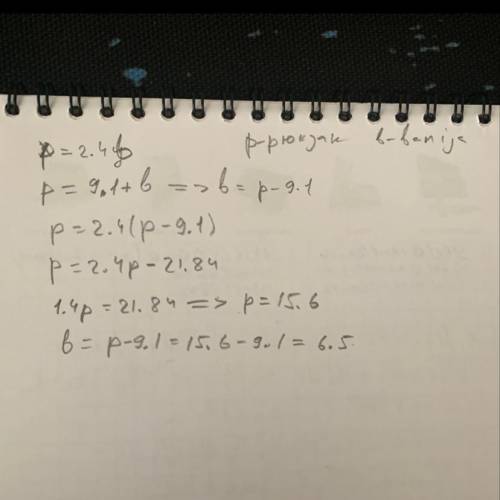 p = 2.4b p-рюкзак b-banija
p = 9.1 + b => b = p - 9.1
p = 2.4(p - 9.1)
p = 2.4p - 21.84
1.4p = 21.84 => p = 15.6
b = p - 9.1 = 15.6 - 9.1 = 6.5